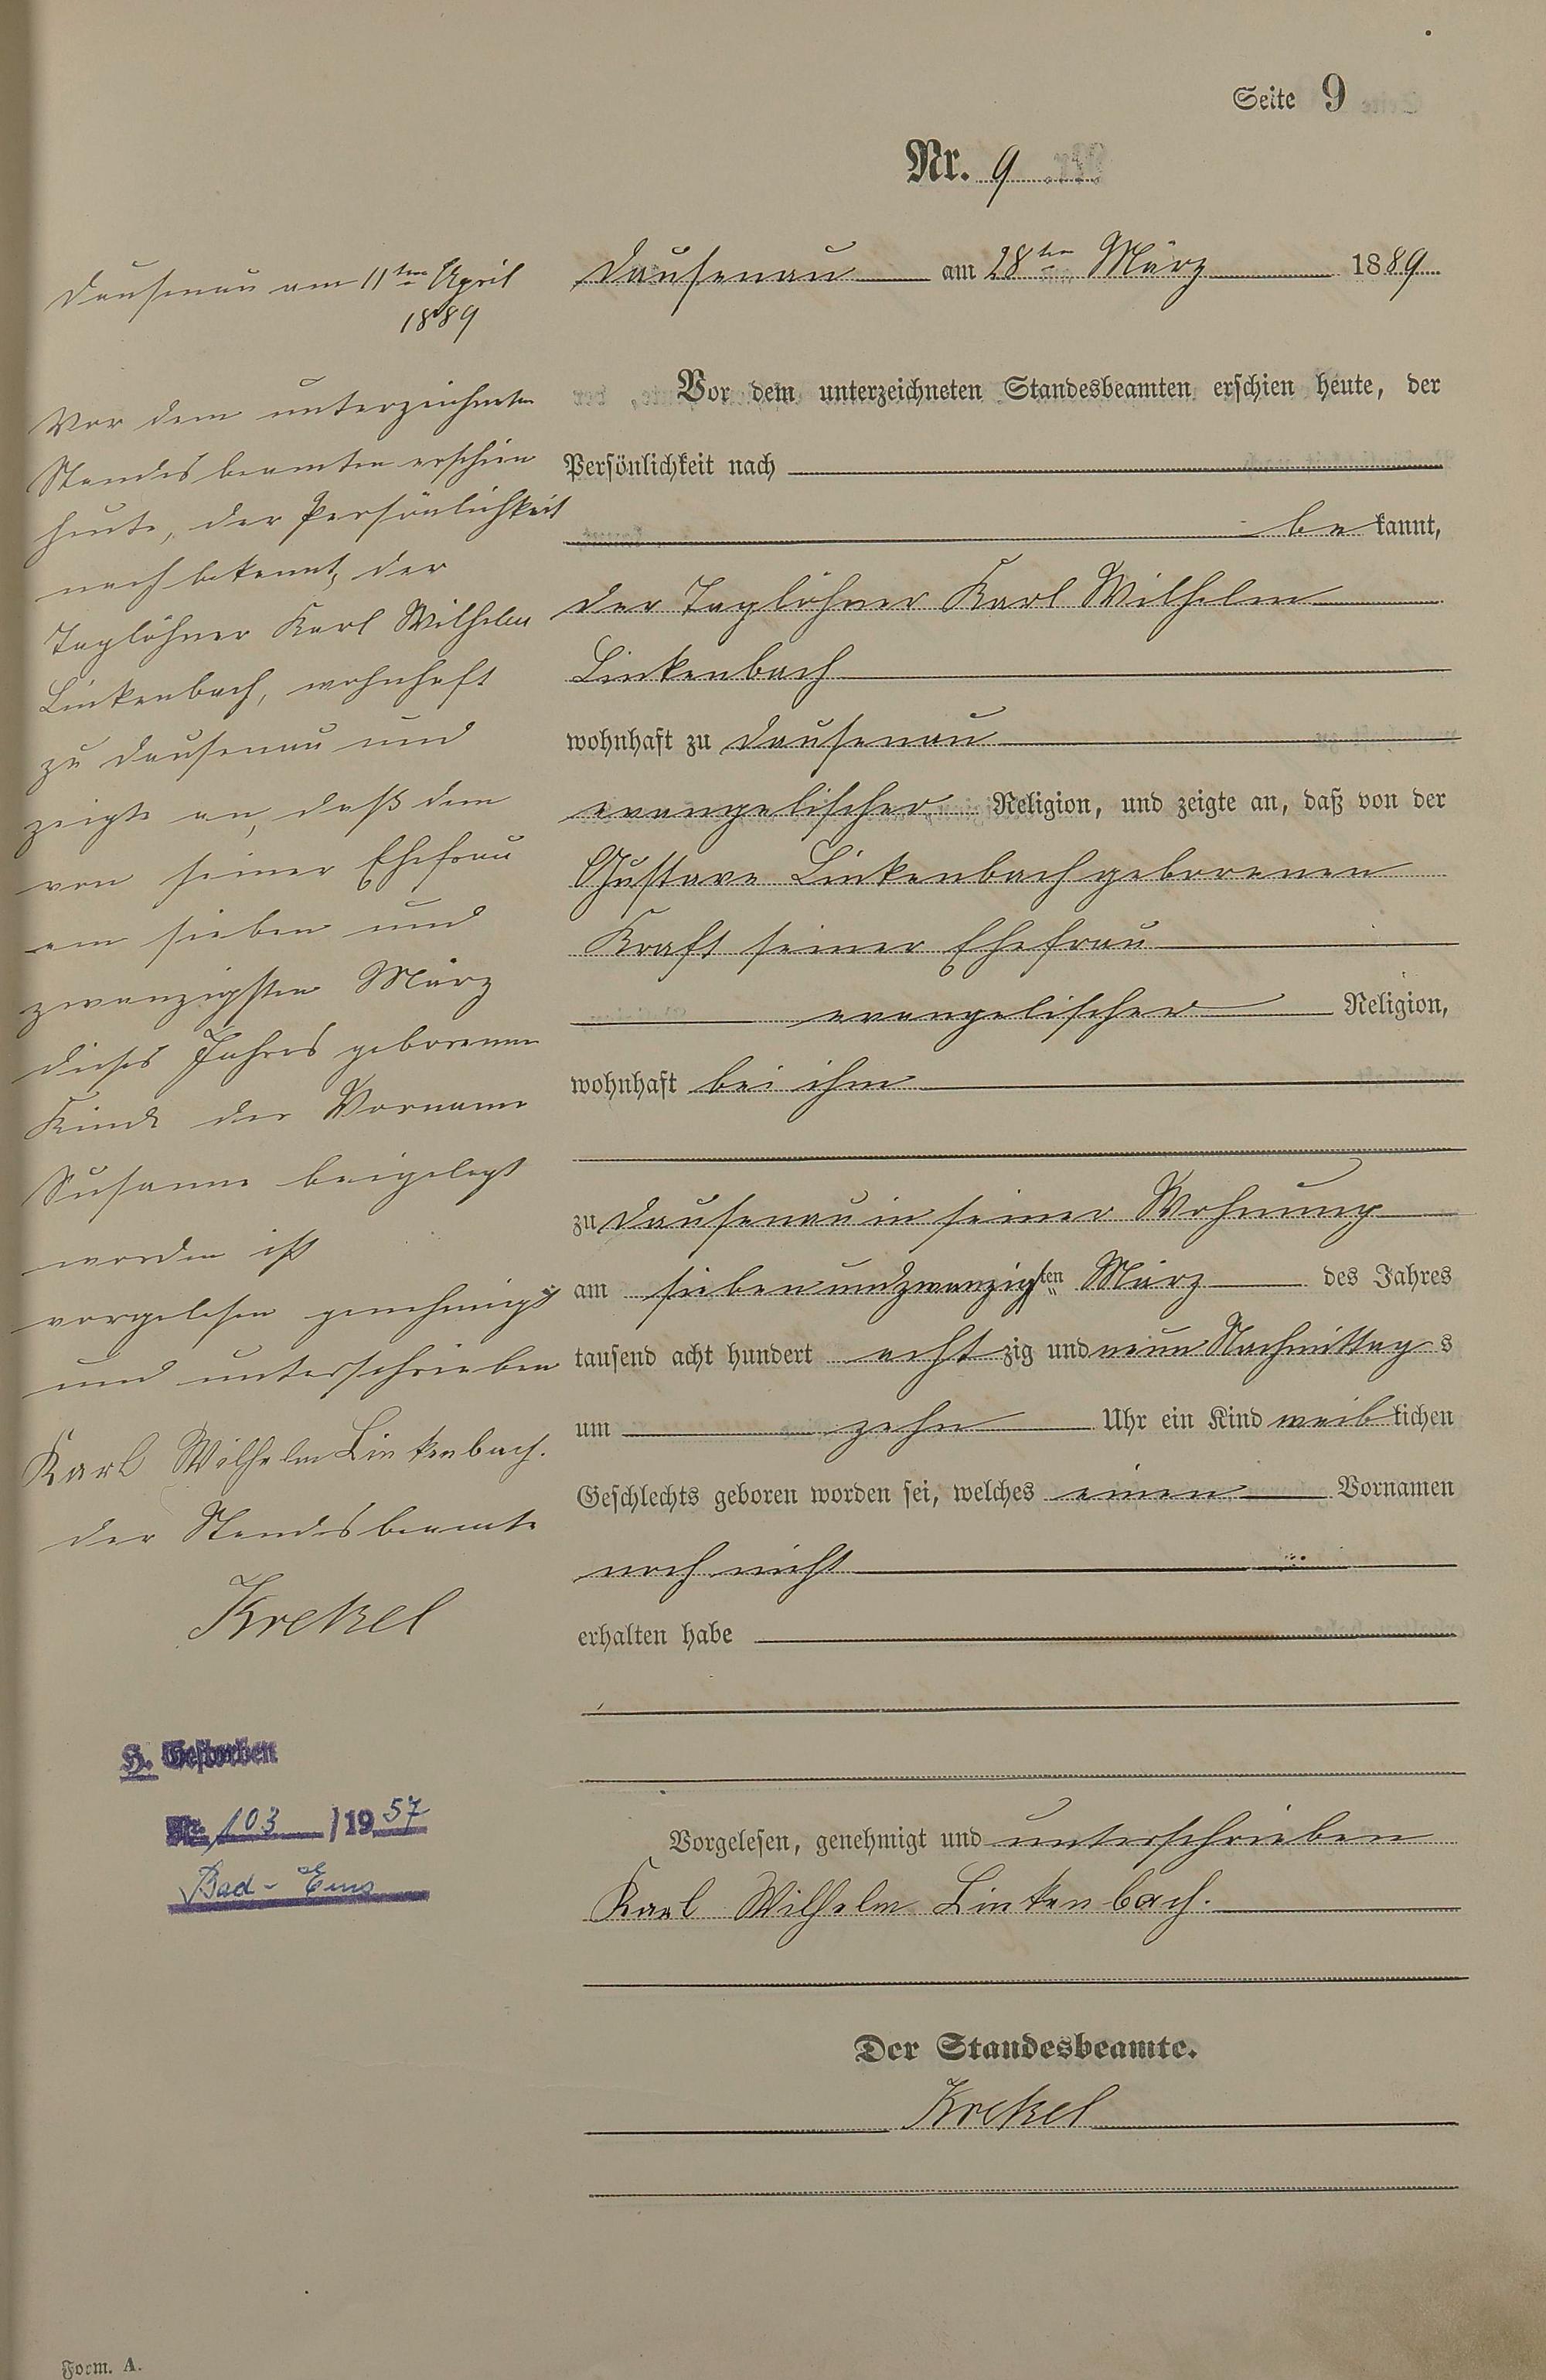 Seite 9
Nr. 9
Dausenau am 28ten März 1889
Vor dem unterzeichneten Standesbeamten erschien heute, der
Persönlichkeit nach
bekannt,
der Taglöhner Karl Wilhelm
Linkenbach
wohnhaft zu Dausenau
evangelischer Religion, und zeigte an, daß von der
Gustave Linkenbach geborenen
Kraft seiner Ehefrau
evangelischer Religion,
wohnhaft bei ihm
zu Dausenau in seiner Wohnung
am siebenundzwanzigsten März des Jahres
tausend acht hundert achtzig und neun Nachmittags
um zehn Uhr ein Kind weiblichen
Geschlechts geboren worden sei, welches einen Vornamen
noch nicht
erhalten habe
Vorgelesen, genehmigt und unterschrieben
Karl Wilhelm Linkenbach.
Der Standesbeamte.
Krekel
Dausenau am 11ten April
1889
Vor dem unterzeichneten
Standesbeamten erschien
heute, der Persönlichkeit
nach bekannt, der
Taglöhner Karl Wilhelm
Linkenbach, wohnhaft
zu Dausenau und
zeigte an, daß dem
von seiner Ehefrau
am sieben und
zwanzigsten März
dieses Jahres geborenen
Kinde der Vorname
Susanne beigelegt
worden ist
vorgelesen genehmigt
und unterschrieben
Karl Wilhelm Linkenbach.
der Standesbeamte
Krekel
H. Gestorben
Nr. 103 /1957
Bad-Ems
Form. A.